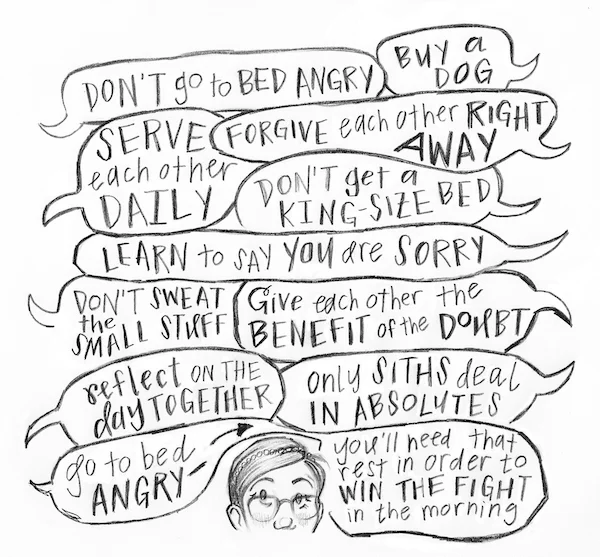 DON'T go to BED ANGRY
BUY a
DOG
SERVE
each other
DAILY
FORGIVE each other RIGHT
AWAY
DON'T get a
KING-SIZE BED
LEARN to SAY YOU are SORRY
DON'T SWEAT
the
SMALL STUFF
Give each other the
BENEFIT of the DOUBT
reflect ON THE
day TOGETHER
only SITHS deal
IN ABSOLUTES
go to bed
ANGRY
you'll need that
rest in order to
WIN THE FIGHT
in the morning